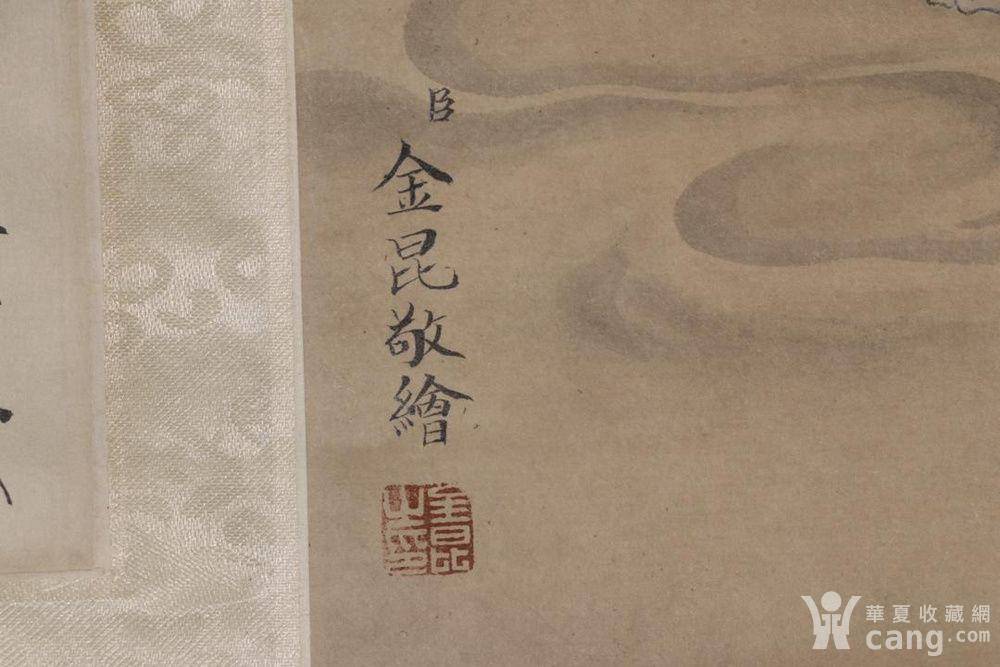 臣金昆敬繪
金昆之印
華夏收藏網
cang.com